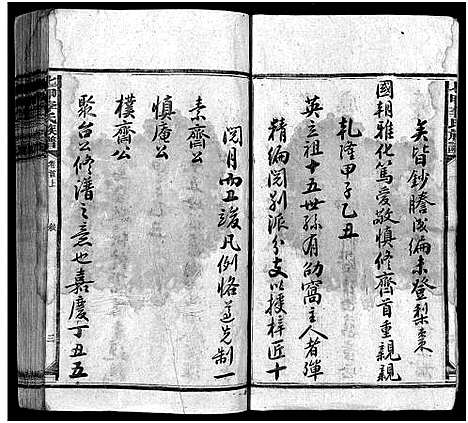 矣皆鈔謄成編未登梨棗
國朝雅化篤爱敬慎修齊首重親親
乾隆甲子乙丑
英立祖十五世孫有幼窩主人者殫
精編閱别派分支以授梓匠十
閱月而工竣凡例恪遵先制一
素齋公
慎庵公
樸齋公
聚台公修譜之意也嘉慶丁丑五
七甲李氏族譜
卷首上
三